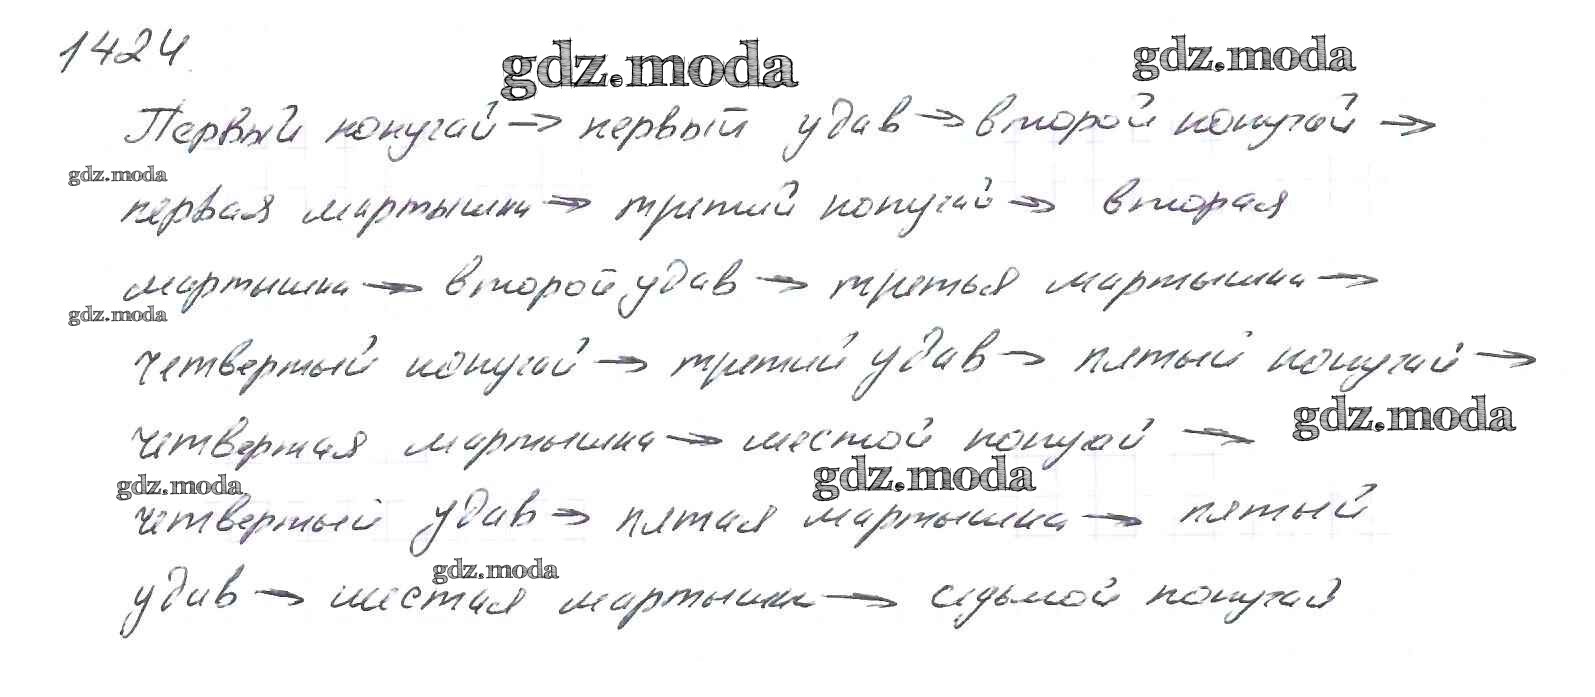 1424
gdz.moda
gdz.moda
Первый попугай → первый удав → второй попугай →
gdz.moda
первая мартышка → третий попугай → вторая
мартышка → второй удав → третья мартышка →
gdz.moda
четвертый попугай → третий удав → пятый попугай →
gdz.moda
четвертая мартышка → шестой попугай →
gdz.moda
gdz.moda
четвертый удав → пятая мартышка → пятый
gdz.moda
удав → шестая мартышка → седьмой попугая